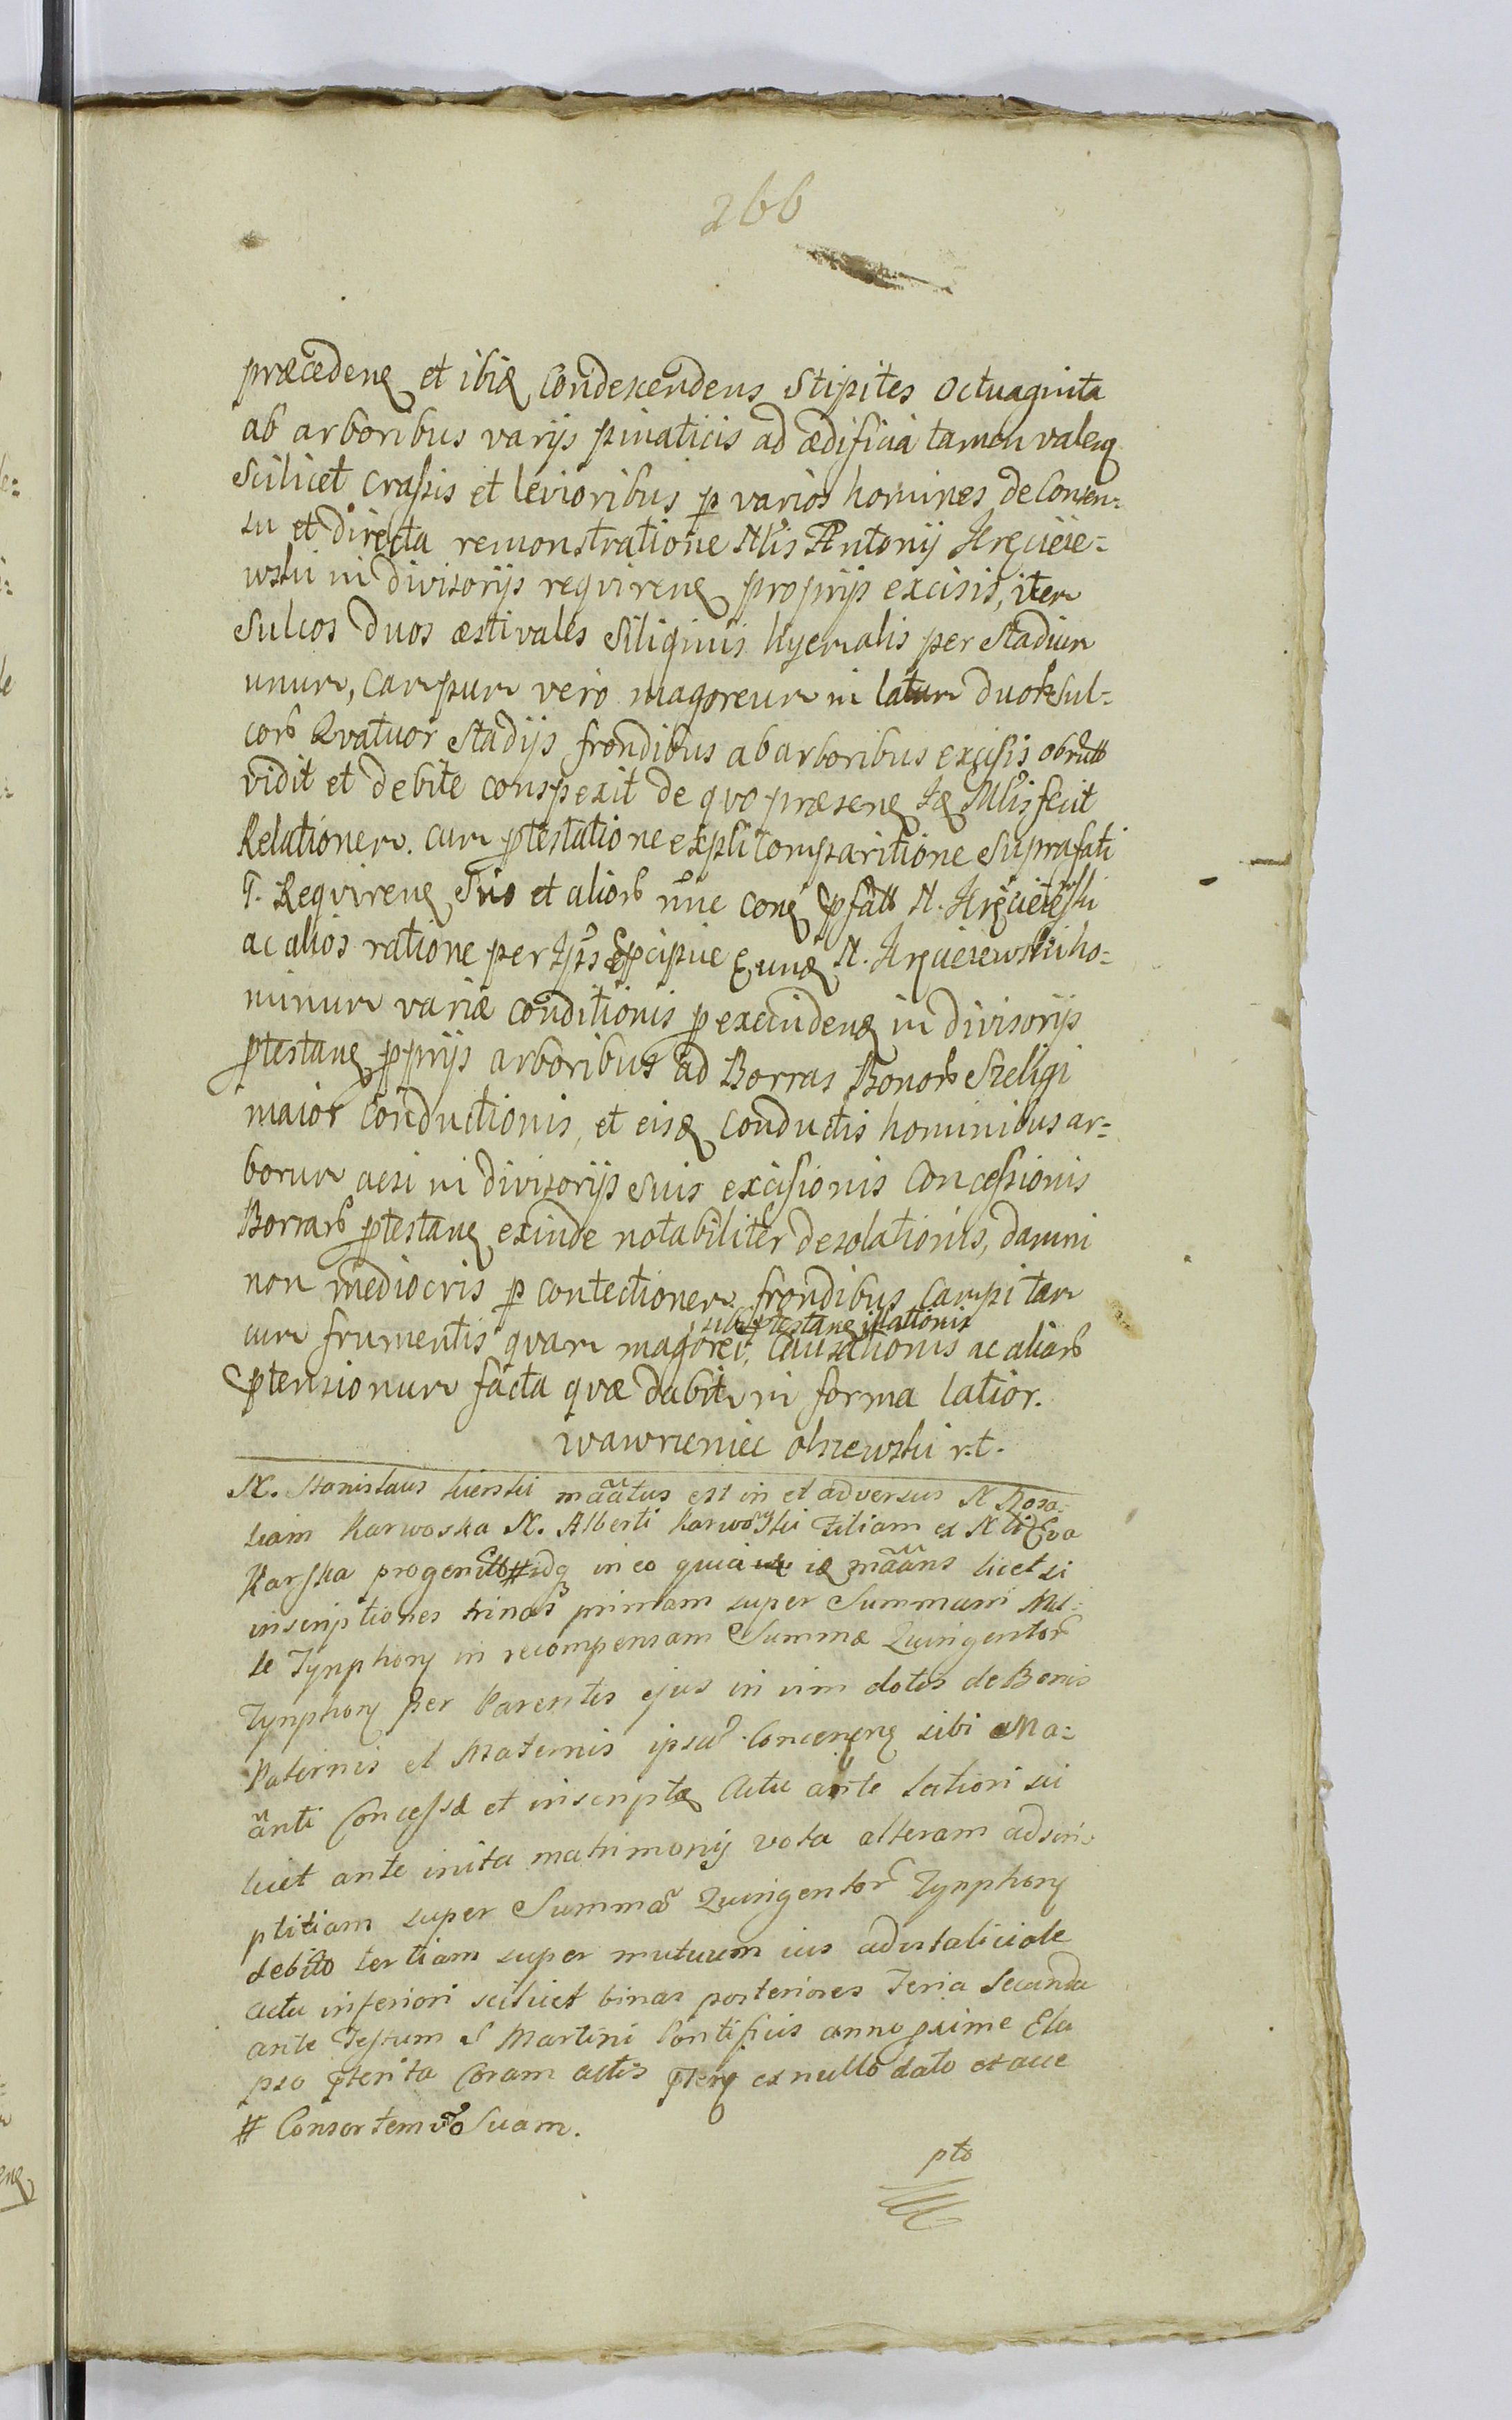 266
præcedenꝫ et ibiꝫ Condexendens Stipites octuaginta
ab arboribus varijs pinaticis ad ædificia tamen valenꝫ
Scilicet crassis et levioribus p varios homines de Consen-
su et directa remonstratione Nlis Antonij
wski in divisorijs reqvirenꝫ proprijs excisis, item
Sulcos duos æstivales Siliginis hyemalis per Stadium
unum, Campum vero magoreum in latum duor Sul-
cor Qvatuor Stadijs frondibus ab arboribus excisis obrutt
vidit et debite conspexit de qvo præsenꝫ Iꝫ Mlis fecit
Relationem. cum ptestatione expli Comparitione Suprafati
T. Reqvirenꝫ Suo et alior nne conꝫ pfatt N.
ac alios ratione per Ipis pcipue Eunꝫ N. ho-
minum variæ conditionis p excindenꝫ in divisorijs
ptestanꝫ pprijs arboribus ad Borras Bonor Szeligi
maior Conductionis, et eisꝫ conductis hominibus ar-
borum acsi in divisorijs suis excisionis Concessionis
Borrar ptestanꝫ exinde notabiliter desolationis, damni
non mediocris p contectionem frondibus Campi tam
sibi ptestanꝫ illationis
cum frumentis qvam magorei, Causationis ac aliar
ptensionum facta qvæ dabit in forma latior.
wawrzeniec olszewski r.t.
N. Stanislaus Kierski maatus est in et adversus N Rosa-
liam Karwoska N. Alberti Karwowski Filiam ex N Eva
Karska progenitt # idq in eo quia iꝫ maans licet si
inscriptiones trinas primam super Summam Mil-
le Tynphonꝫ in recompensam Summæ Quingentor
Tynphonꝫ per Parentes ejus in vim dotis de Bonis
Paternis et Maternis ipsa Concernenꝫ sibi Ma-
anti Concessæ et inscriptꝫ Actu ante latiori sci
licet ante inita matrimonij vota alteram adscri-
ptitiam super Summa Quingentor Tynphonꝫ
debito tertiam super mutuum ius advitaliciale
actu inferiori scilicet binas posteriores Feria Secunda
ante Festum S Martini Pontificis anno pxime Ela
pso pterita Coram actis pterꝫ ex nullo dato et acce
# Consortem vo Suam.
pto